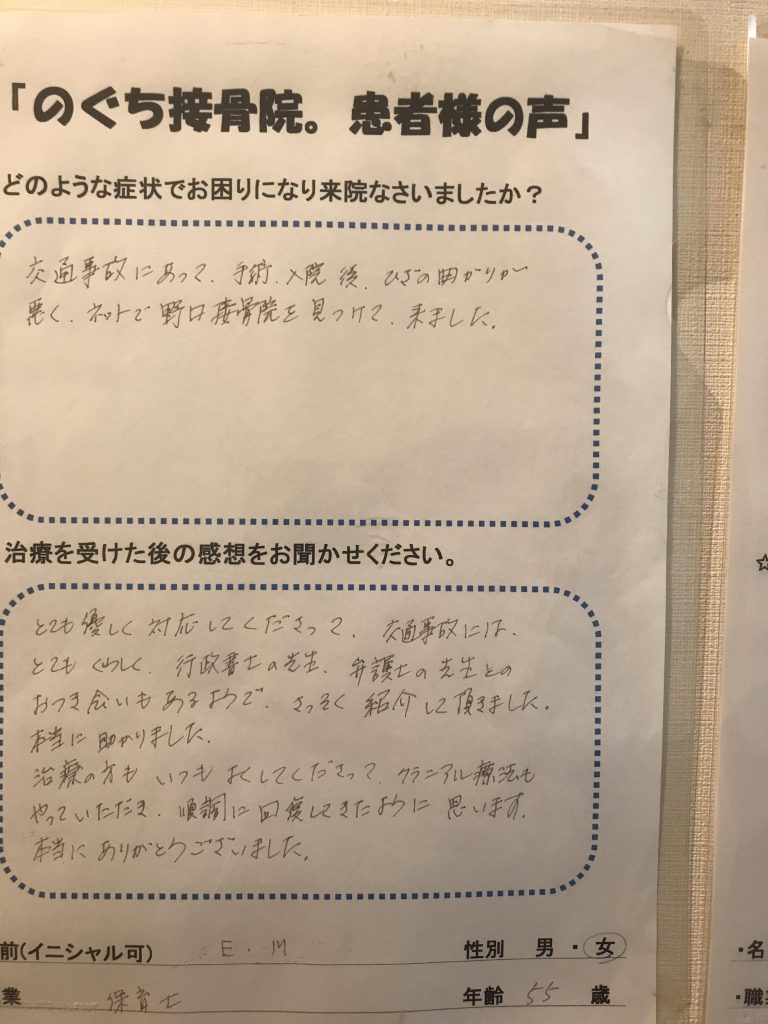 「のぐち接骨院。患者様の声」
どのような症状でお困りになり来院なさいましたか？
交通事故にあって、手術、入院後、ひざの曲がりが
悪く、ネットで野口接骨院を見つけて、来ました。
治療を受けた後の感想をお聞かせください。
とても優しく対応してくださって、交通事故には、
とてもくわしく、行政書士の先生、弁護士の先生との
おつき会いもあるようで、さっそく紹介して頂きました。
本当に助かりました。
治療の方もいつもよくしてくださって、クラニアル療法も
やっていただき、順調に回復してきたように思います。
本当にありがとうございました。
前(イニシャル可) E.M 性別 男・女
業 保育士 年齢 55 歳
☆
・名
・職